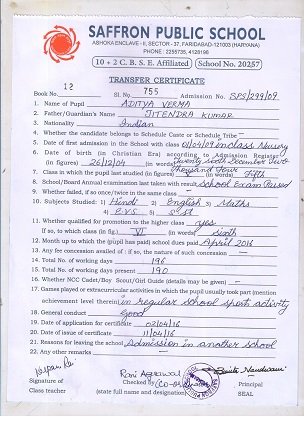 SAFFRON PUBLIC SCHOOL
ASHOKA ENCLAVE - II, SECTOR - 37, FARIDABAD-121003 (HARYANA)
Phone : 2255735, 4128198
10 + 2 C. B. S. E. Affiliated School No. 20257
TRANSFER CERTIFICATE
Book No. 12 Sl. No. 755 Admission No. SPS/299/09
1. Name of Pupil ADITYA VERMA
2. Father/Guardian's Name JITENDRA KUMAR
3. Nationality Indian
4. Whether the candidate belongs to Schedule Caste or Schedule Tribe -
5. Date of first admission in the School with class 01/04/09 in class Nursery
6. Date of birth (in Christian Era) according to Admission Register
(in figures) 26/12/04 (in words) Twenty Sixth December Two
Thousand Four
7. Class in which the pupil last studied (in figures) V (in words) Fifth
8. School/Board Annual examination last taken with result School Exam Passed
9. Whether failed, if so once/twice in the same class -
10. Subjects Studied : 1. Hindi 2. English 3. Maths
4. E.V.S 5. S.St
11. Whether qualified for promotion to the higher class yes
If so, to which class (in fig.) VI (in words) Sixth
12. Month up to which the (pupil has paid) school dues paid April 2016
13. Any fee concession availed : if so, the nature of such concession -
14. Total No. of working days 196
15. Total No. of working days present 190
16. Whether NCC Cadet/Boy Scout/Girl Guide (details may be given) -
17. Games played or extracurricular activities in which the pupil usually took part (mention
achievement level therein) in regular school sports activity
18. General conduct Good
19. Date of application for certificate 02/04/16
20. Date of issue of certificate 11/04/16
21. Reasons for leaving the school Admission in another school
22. Any other remarks -
Rani Agrawal
Signature of Checked by (Co-ordinator) Principal
Class teacher (state full name and designation) SEAL